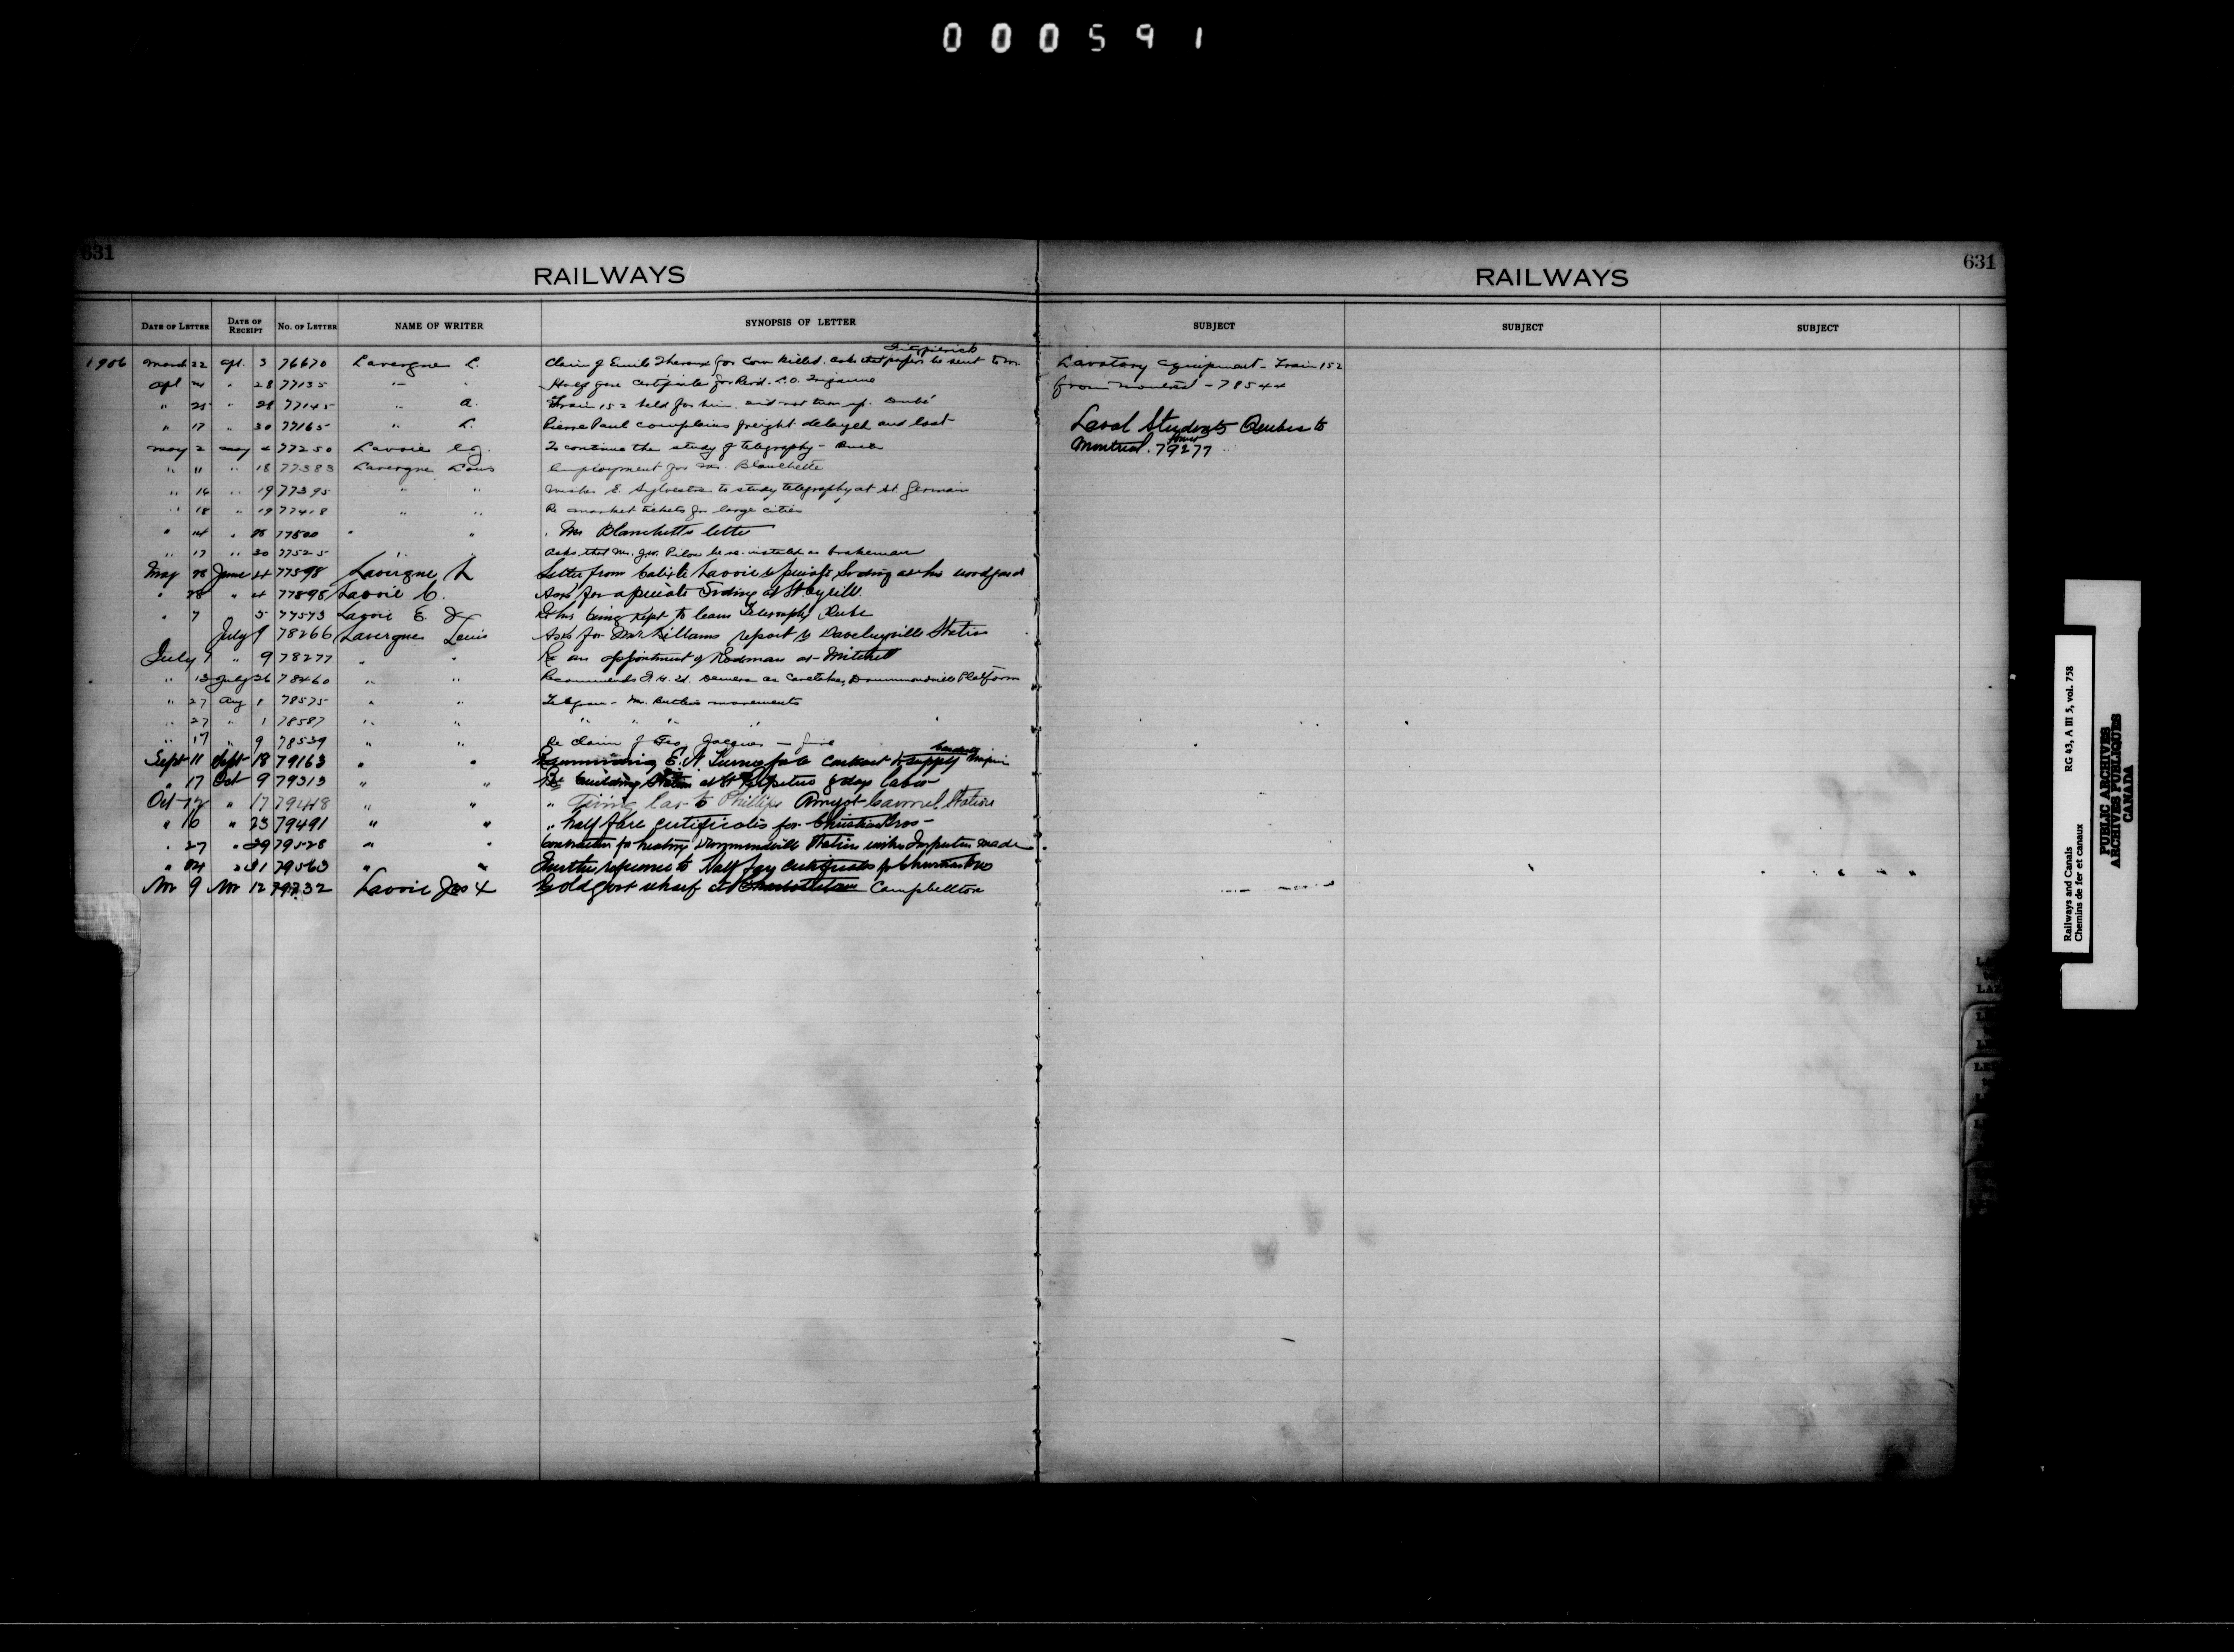 000591
631
RAILWAYS
RAILWAYS
631
DATE OF LETTER DATE OF RECEIPT No. OF LETTER NAME OF WRITER SYNOPSIS OF LETTER
SUBJECT SUBJECT SUBJECT
1906 March 22 Apl. 3 76670 Lavergne L. Claim of Emile Theroux for Cow killed. asks that papers be sent to Fitzpatrick
Apl 24 " 28 77135 " " Half fare Certificate for Revd. L.O.
" 25 " 28 77145 " A. Train 152 held for him. did not turn up. Dubé
" 17 " 30 77165 " L. Pierre Paul complains freight delayed and lost
May 2 May 4 77250 Lavoie To continue the study of telegraphy -
" 11 " 18 77383 Lavergne Louis Employment for Mr. Blanchette
" 16 " 19 77395 " " E. Sylvestre to study telegraphy at St. Germain
" 18 " 19 77418 " " Re market tickets for large cities
" 14 " 28 77500 " " Mr Blanchette letter
" 17 " 30 77525 " " Asks that Mr. J.W. Pilon be re-instated as brakeman
May 28 June 4 77598 Lavergne L Letter from Calixte Lavoie re private Siding at his woodyard
" 28 " 4 77898 Lavoie C. Asks for a private Siding at St Cyrille
" 7 5 77573 Lavoie E. J. Re his being kept to learn Telegraphy
July 9 78266 Lavergne Louis Asks for Mr Killams report re Daveluyville Station
July 7 " 9 78277 " " Re an appointment of Rodman at Mitchell
" 13 July 26 78460 " " Recommends Demers as Caretaker, Drummondville Platform
" 27 Aug 1 78575 " " Telegram - Mr. Butlers movements
" 27 " 1 78587 " " " " " "
" 17 " 9 78539 " " Re claim of Geo. Jacques - fire
Sept 11 Sept 18 79163 " " E. N. Turner for Contract to supply
" 17 Oct 9 79313 " " Re building Station at St Perpetue by day labor
Oct 12 " 17 79448 " " " Phillips Amyot Carmel Station
" 16 " 23 79491 " " " half fare certificates for Christian Bros -
" 27 " 29 79528 " " Contractor for heating Drummondville Station wishes Inspection made
" 24 " 31 79563 " " Further reference to Half fare Certificates for Christian Bros
Nov 9 Nov 12 79732 Lavoie Jos Coldport wharf at Charlottetown Campbellton
Lavatory Equipment - Train 152
from Montreal - 78544
Laval Students Quebec to
Montreal. 79277
Railways and Canals RG 43, A III 5, vol. 758
Chemins de fer et canaux
PUBLIC ARCHIVES
ARCHIVES PUBLIQUES
CANADA